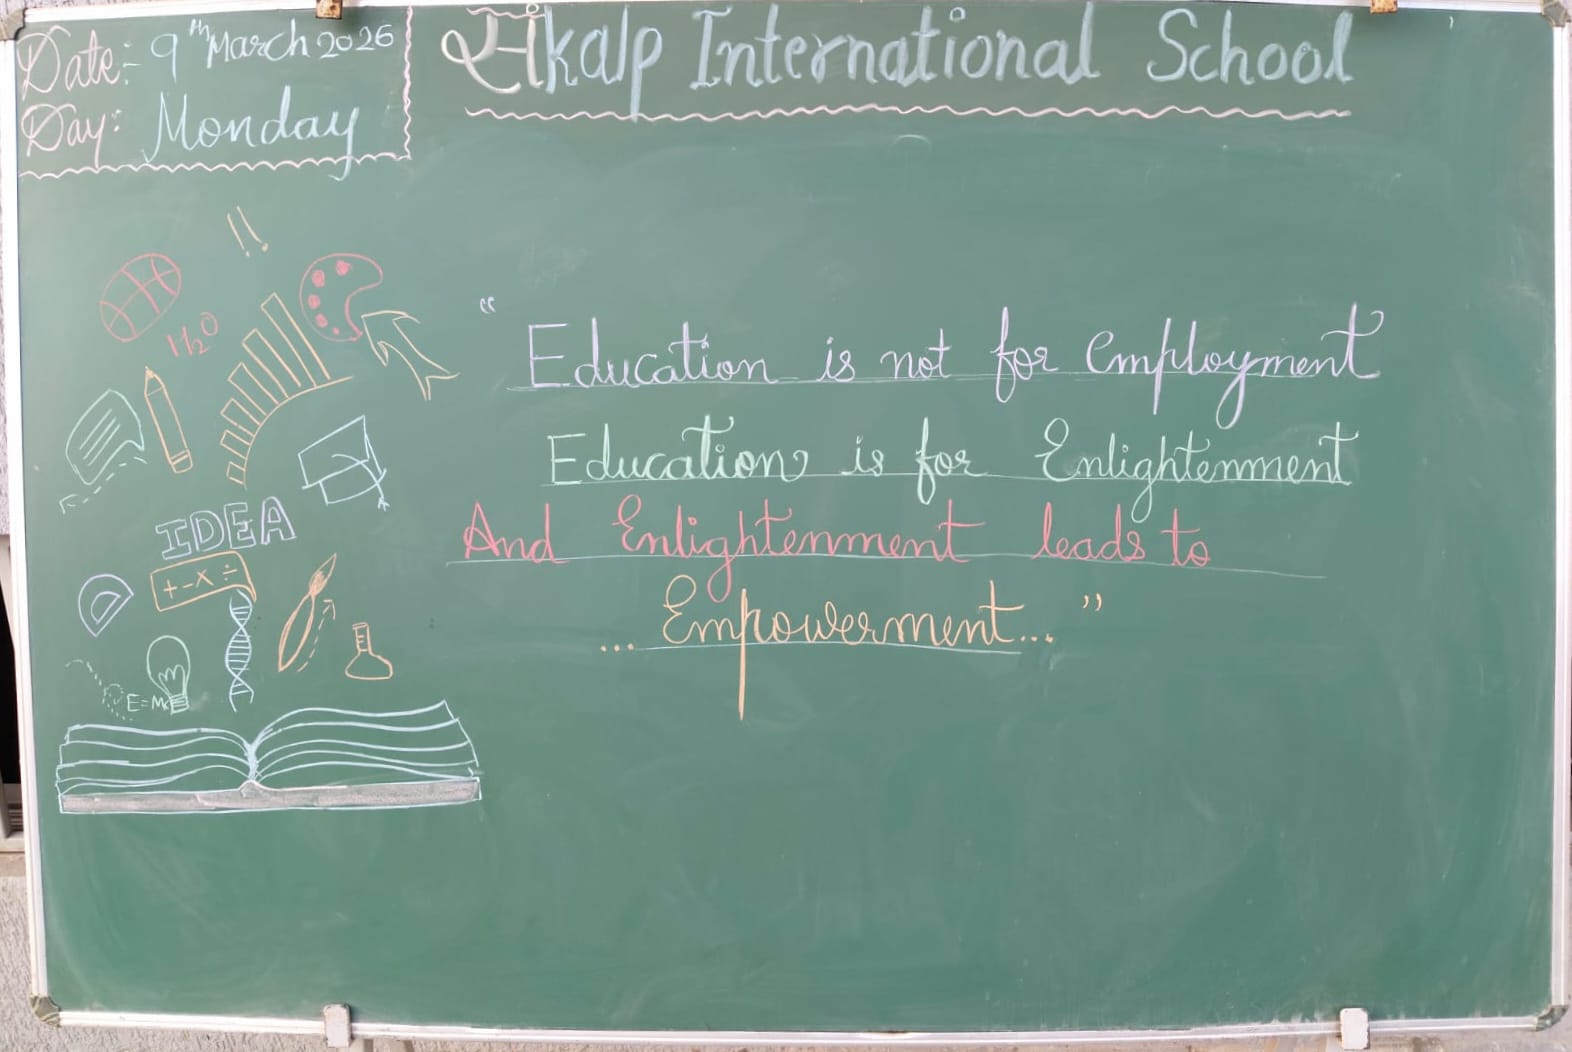 Date:- 9th March 2026
Day: Monday
सांkalp International School
!!
H₂O
IDEA
+-×÷
E=Mc
“Education is not for employment
Education is for Enlightenment
And Enlightenment leads to
... Empowerment... ”